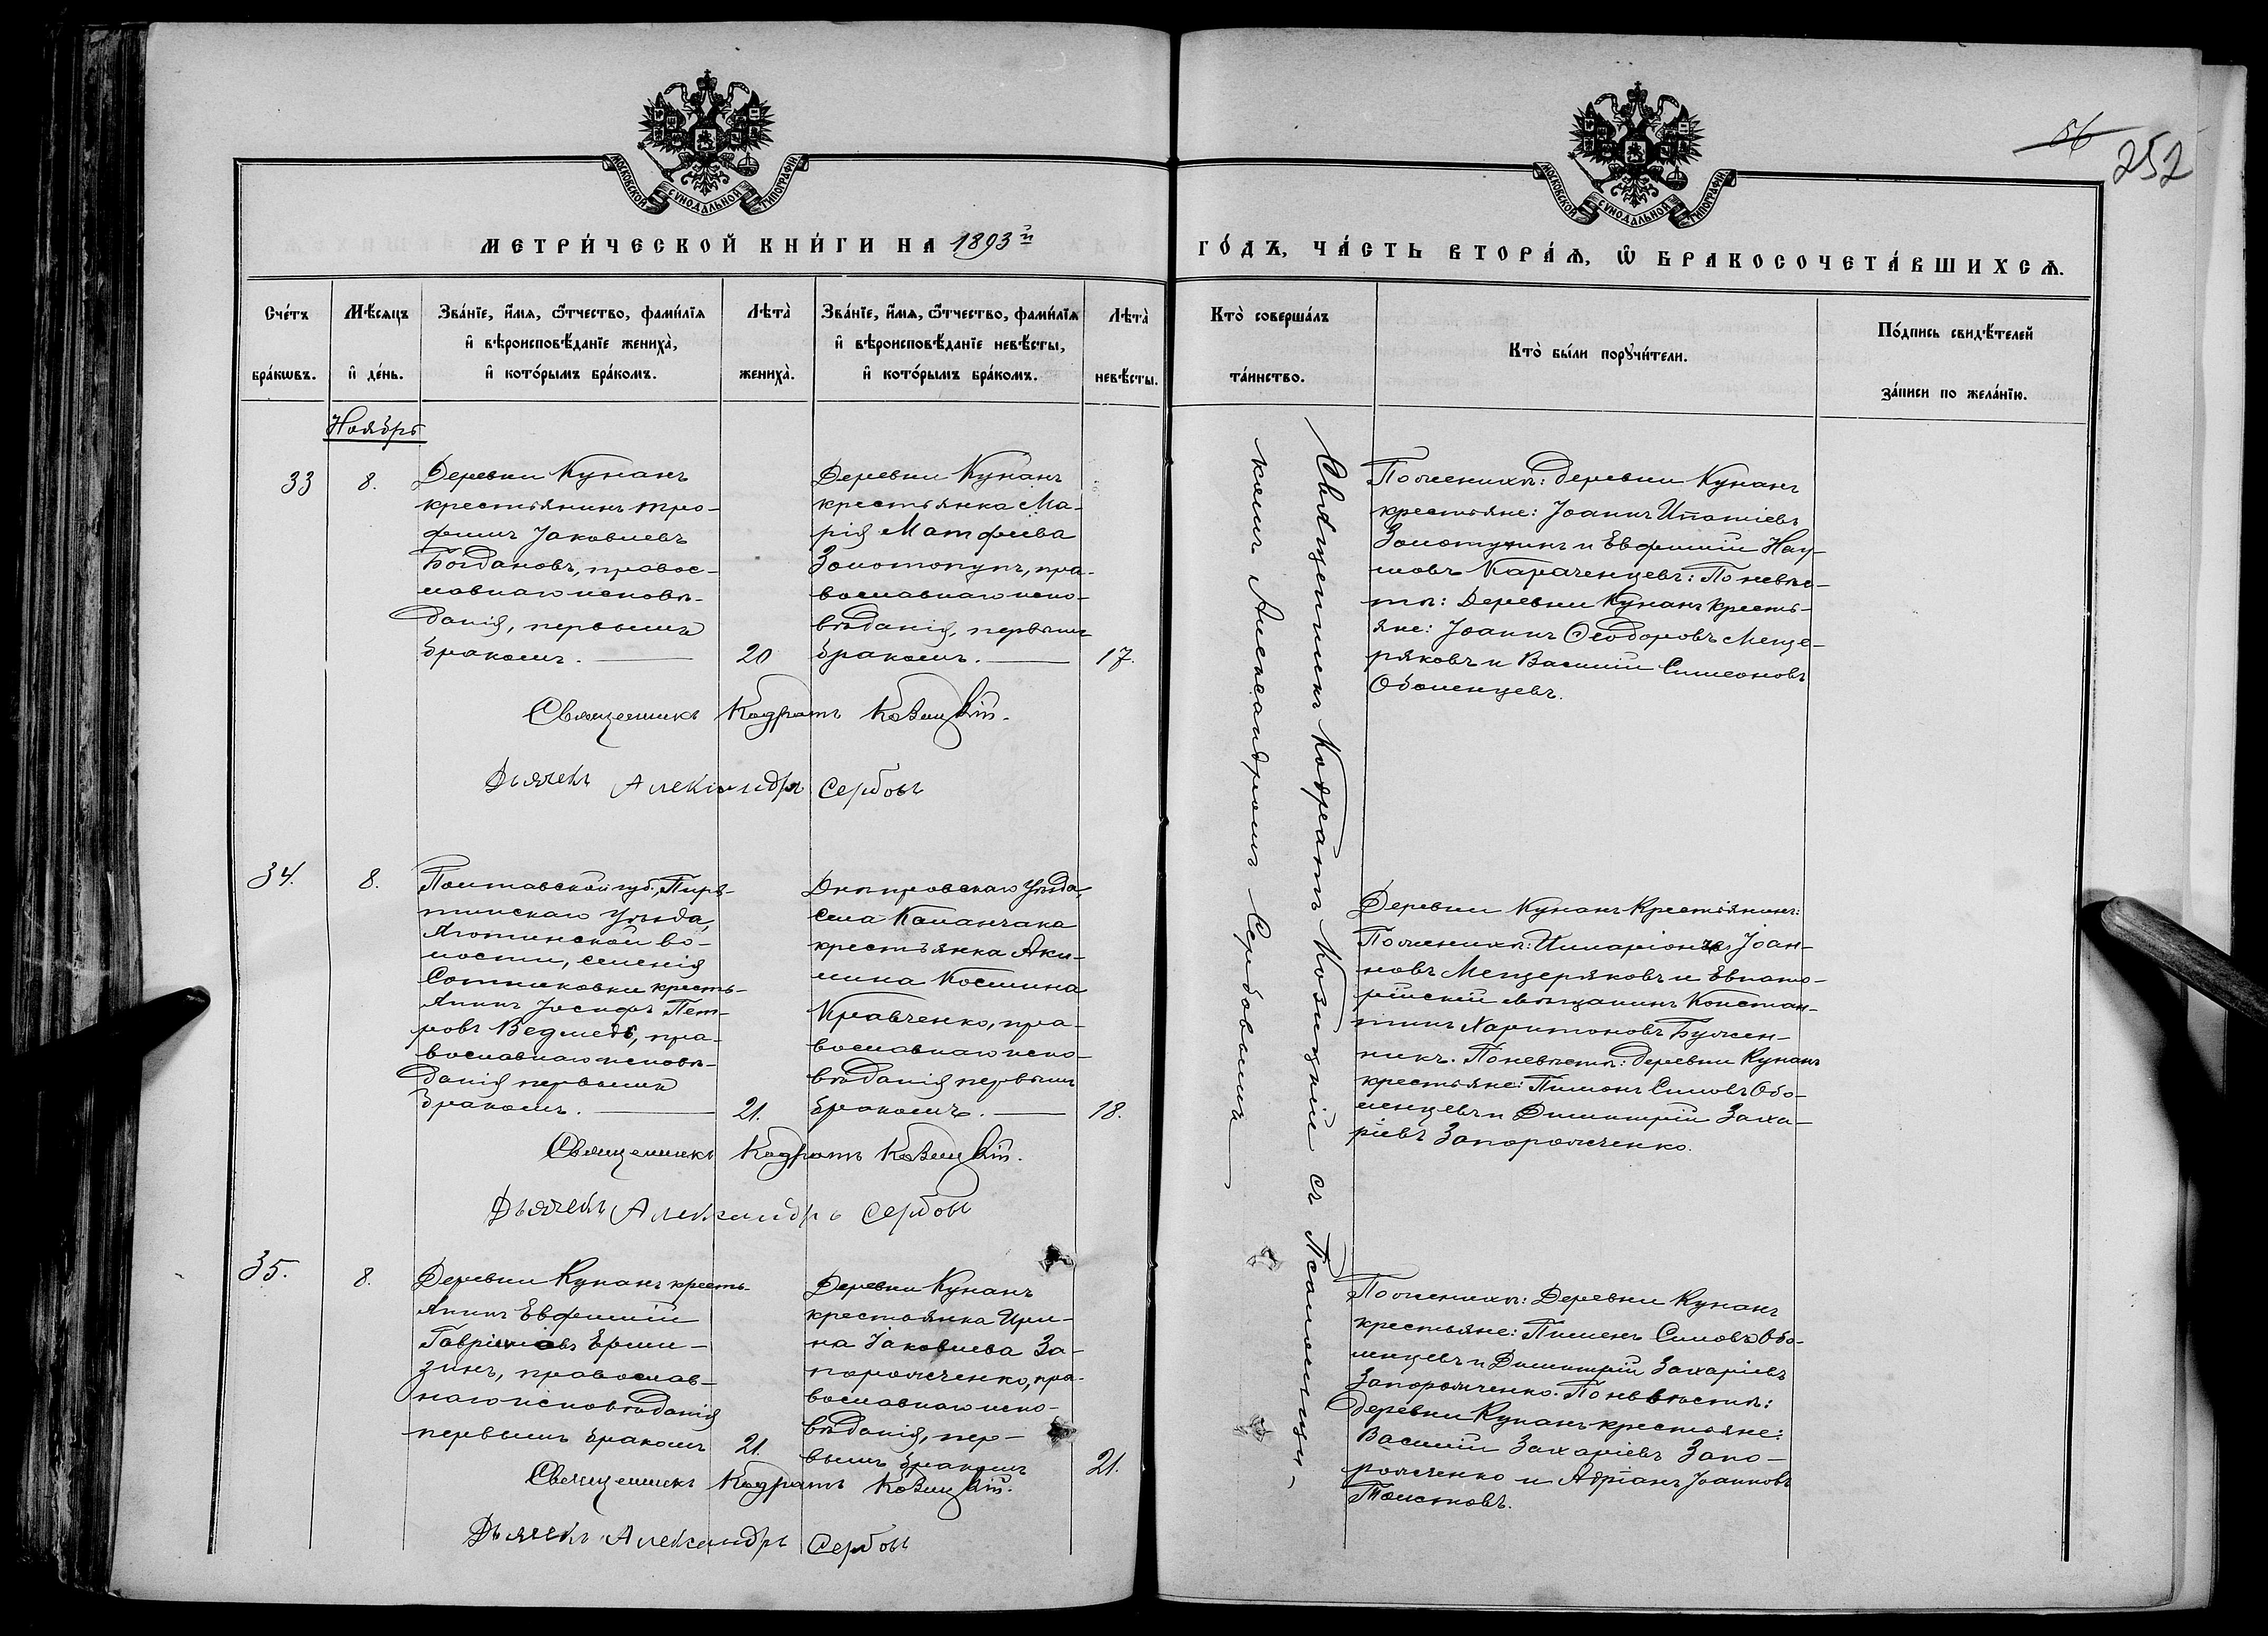 56
252
МОСКОВСКОЙ СѴНОДАЛЬНОЙ ТИПОГРАФІИ
МОСКОВСКОЙ СѴНОДАЛЬНОЙ ТИПОГРАФІИ
МЕТРИ́ЧЕСКОЙ КНИ́ГИ НА 1893й
ГО́ДЪ, ЧА́СТЬ ВТОРА́Ѧ, Ѡ҆ БРАКОСОЧЕТА́ВШИХСѦ.
Сче́тъ бра́кѡвъ.
Мѣ́сѧцъ и҆ де́нь.
Зва́нїе, и҆́мѧ, ѻ҆́тчество, фами́лїѧ
и҆ вѣроисповѣ́данїе жениха̀,
и҆ кото́рымъ бра́комъ.
Лѣта̀ жениха̀.
Зва́нїе, и҆́мѧ, ѻ҆́тчество, фами́лїѧ
и҆ вѣроисповѣ́данїе невѣ́сты,
и҆ кото́рымъ бра́комъ.
Лѣта̀ невѣ́сты.
Кто̀ соверша́лъ
та́инство.
Кто̀ бы́ли порꙋчи́тели.
По́дпись свидѣ́телей
за́писи по жела́нїю.
Ноябрь
33
8.
Деревни Кунанъ
крестьянинъ Тро-
фимъ Іаковлевъ
Богдановъ, правос-
лавнаго исповѣ-
данія, первымъ
бракомъ.
20
Деревни Кунанъ
крестьянка Ма-
рія Матфіева
Золотопупъ, пра-
вославнаго испо-
вѣданія, первымъ
бракомъ.
17.
По женихѣ: деревни Кунанъ
крестьяне: Іоаннъ Ипатіевъ
и Евфимій Нау-
мовъ Караченцевъ: По невѣс-
тѣ: Деревни Кунанъ кресть-
яне: Іоаннъ Ѳеодоровъ Меще-
ряковъ и Василій Симеоновъ
Оболенцевъ.
Священникъ Кодратъ Козицкій.
Дьячекъ Александръ Сербовъ
34.
8.
Полтавской губ., Пиря-
тинскаго уѣзда,
Яготинской во-
лости, селенія
Сотниковки кресть-
янинъ Іосифъ Пет-
ровъ Ведмедь, пра-
вославнаго исповѣ-
данія первымъ
бракомъ.
21.
Днѣпровскаго уѣзда,
села Каланчака
крестьянка Аки-
лина Космина
Кравченко, пра-
вославнаго испо-
вѣданія первымъ
бракомъ.
18.
Деревни Кунанъ Крестьянинъ:
По женихѣ: Иларіонъ Іоан-
новъ Мещеряковъ и Евпато-
рійскій мѣщанинъ Констан-
тинъ Харитоновъ
По невѣстѣ: деревни Кунанъ
крестьяне: Пименъ Симовъ Обо-
ленцевъ и Димитрій Заха-
ріевъ Запорожченко.
Священникъ Кодратъ Козицкій.
Дьячекъ Александръ Сербовъ
35.
8.
Деревни Кунанъ кресть-
янинъ Евфимій
Гавріиловъ Ерми-
зинъ, православ-
наго исповѣданія
первымъ бракомъ
21.
Деревни Кунанъ
крестьянка Ири-
на Іаковлева За-
порожченко, пра-
вославнаго испо-
вѣданія, пер-
вымъ бракомъ
21.
По женихѣ: Деревни Кунанъ
крестьяне: Пименъ Симовъ Обо-
ленцевъ и Димитрій Захаріевъ
Запорожченко. По невѣстѣ:
деревни Кунанъ крестьяне:
Василій Захаріевъ Запо-
рожченко и Адріанъ Іоанновъ
Толстовъ.
Священникъ Кодратъ Козицкій.
Дьячекъ Александръ Сербовъ
Священникъ Кодратъ Козицкій съ Псаломщи-
комъ Александромъ Сербовымъ